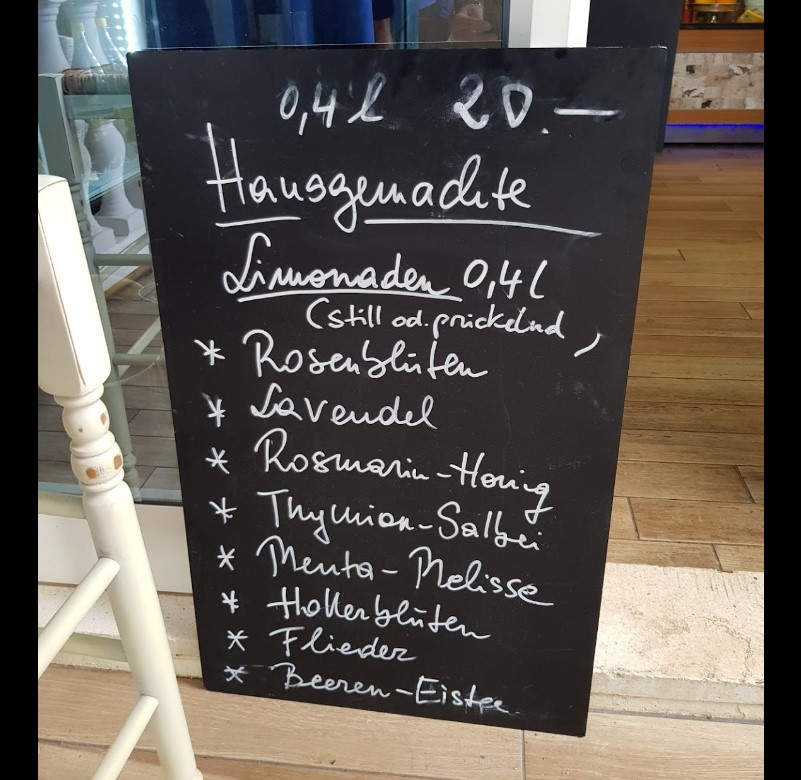 0,4 l 20.—
Hausgemachte
Limonaden 0,4 l
(still od. prickelnd)
* Rosenblüten
* Lavendel
* Rosmarin-Honig
* Thymian-Salbei
* Menta-Melisse
* Hollerblüten
* Flieder
* Beeren-Eistee